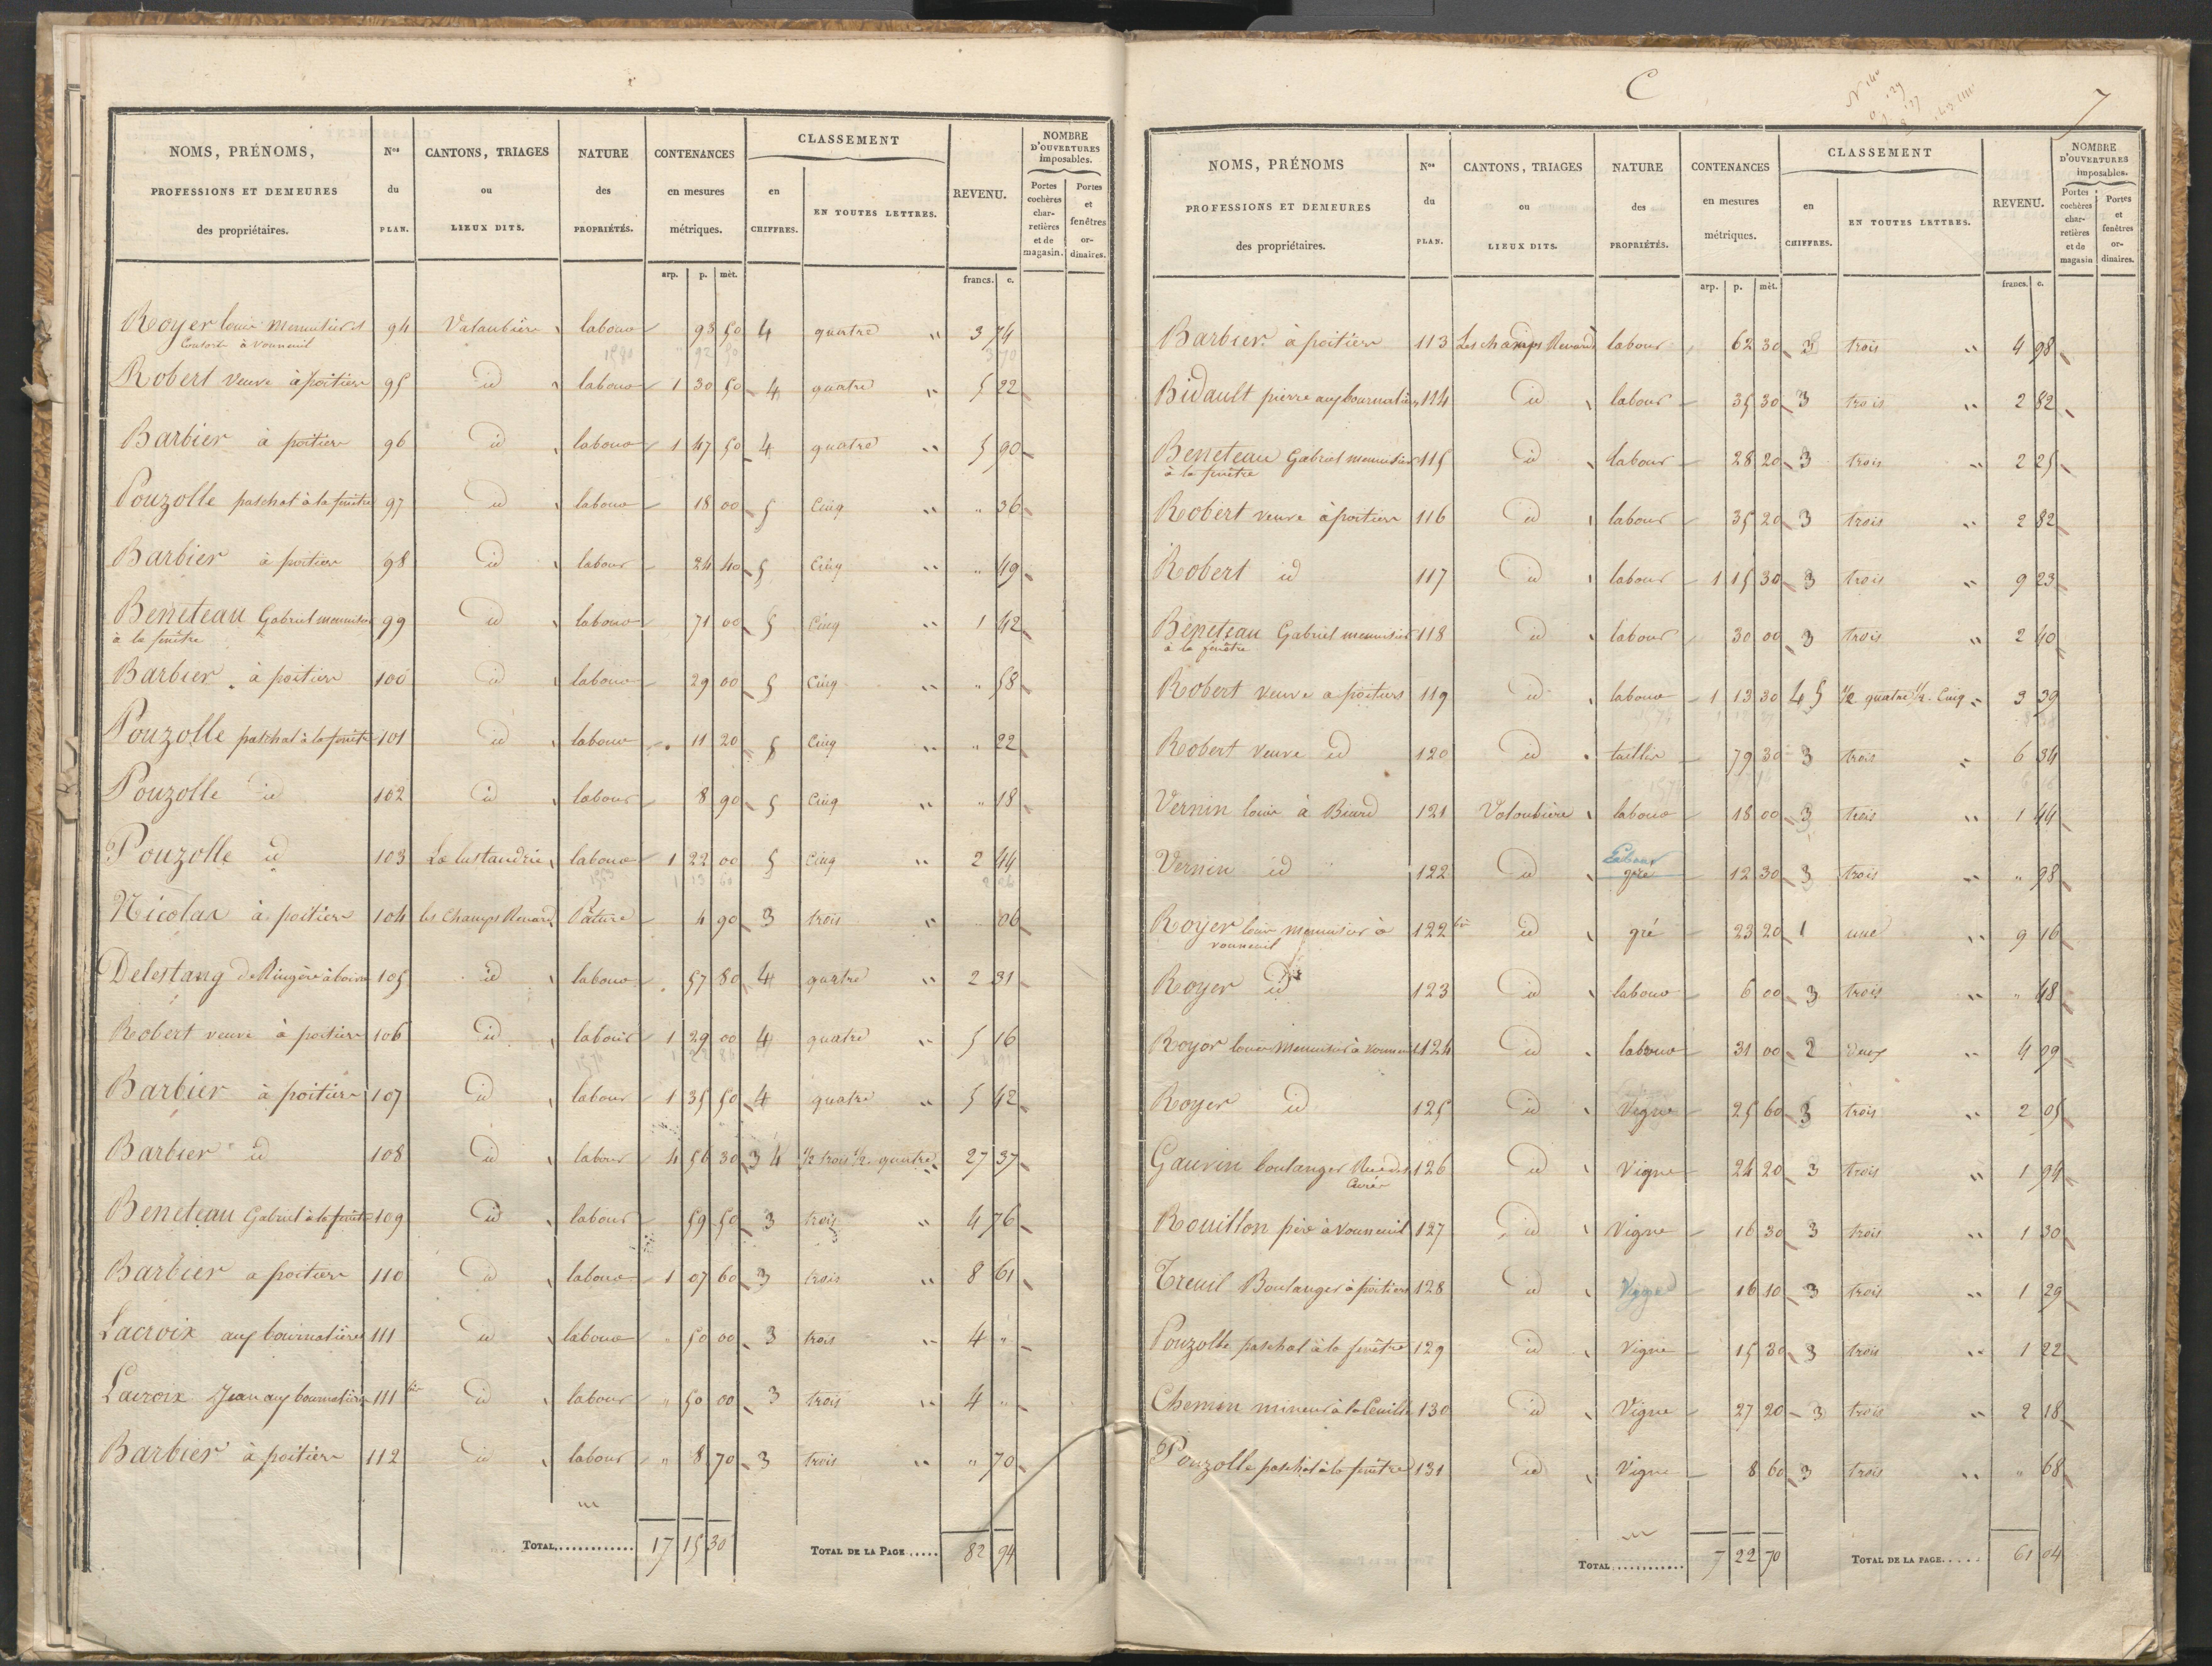 NOMS, PRÉNOMS, PROFESSIONS ET DEMEURES des propriétaires. | Nos du PLAN. | CANTONS, TRIAGES ou LIEUX DITS. | NATURE des PROPRIÉTÉS. | CONTENANCES en mesures métriques. | CLASSEMENT en CHIFFRES. | EN TOUTES LETTRES. | REVENU. | NOMBRE D'OUVERTURES imposables. Portes cochères charretières et de magasin. | Portes et fenêtres ordinaires.
arp. p. mèt. francs. c.
Royer louis menuisier 94 Valaubière labour 93 50 4 quatre " 3 74
Consorts à Vouneuil
Robert veuve à poitiers 95 id labour 1 30 50 4 quatre " 5 22
Barbier à poitiers 96 id labour 1 47 50 4 quatre " 5 90
Pouzolle paschal à la fenêtre 97 id labour 18 00 5 Cinq " " 36
Barbier à poitiers 98 id labour 24 40 5 Cinq " " 49
Beneteau Gabriel menuisier 99 id labour 71 00 5 Cinq " 1 42
à la fenêtre
Barbier à poitiers 100 id labour 29 00 5 Cinq " " 58
Pouzolle paschal à la fenêtre 101 id labour 11 20 5 Cinq " " 22
Pouzolle id 102 id labour 8 90 5 Cinq " " 18
Pouzolle id 103 labour 1 22 00 5 Cinq " 2 44
Nicolas à poitiers 104 les Champs Renard Pature 4 90 3 trois " 06
Delestang 105 id labour 57 80 4 quatre " 2 31
Robert veuve à poitiers 106 id labour 1 29 00 4 quatre " 5 16
Barbier à poitiers 107 id labour 1 35 50 4 quatre " 5 42
Barbier id 108 id labour 4 56 30 3 4 1/2 trois 1/2 quatre 27 37
Beneteau Gabriel à la fenêtre 109 id labour 59 50 3 trois " 4 76
Barbier a poitiers 110 id labour 1 07 60 3 trois " 8 61
Lacroix aux bournatières 111 id labour " 50 00 3 trois " 4 "
Lacroix Jean aux bournatières 111 bis id labour " 50 00 3 trois " 4 "
Barbier à poitiers 112 id labour " 8 70 3 trois " " 70
TOTAL............ 17 15 30 TOTAL DE LA PAGE..... 82 94
C 7
NOMS, PRÉNOMS PROFESSIONS ET DEMEURES des propriétaires. | Nos du PLAN. | CANTONS, TRIAGES ou LIEUX DITS. | NATURE des PROPRIÉTÉS. | CONTENANCES en mesures métriques. | CLASSEMENT en CHIFFRES. | EN TOUTES LETTRES. | REVENU. | NOMBRE D'OUVERTURES imposables. Portes cochères charretières et de magasin | Portes et fenêtres ordinaires.
arp. p. mèt. francs. c.
Barbier à poitiers 113 Les champs Renards labour 62 30 3 trois " 4 98
Bidault pierre aux bournatières 114 id labour 35 30 3 trois " 2 82
Beneteau Gabriel menuisier 115 id labour 28 20 3 trois " 2 25
à la fenêtre
Robert veuve à poitiers 116 id labour 35 20 3 trois " 2 82
Robert id 117 id labour 1 15 30 3 trois " 9 23
Beneteau Gabriel menuisier 118 id labour 30 00 3 trois " 2 40
à la fenêtre
Robert veuve a poitiers 119 id labour 1 13 30 4 5 1/2 quatre 1/2 Cinq 3 39
Robert veuve id 120 id taillis 79 30 3 trois " 6 34
Vernin louis à Biard 121 Valoubière labour 18 00 3 trois " 1 44
Vernin id 122 id Labour pré 12 30 3 trois " " 98
Royer louis menuisier à 122 bis id pré 23 20 1 une " 9 16
vouneuil
Royer id 123 id labour 6 00 3 trois " " 48
Royer louis menuisier à Vouneuil 124 id labour 31 00 2 deux " 4 09
Royer id 125 id Vigne 25 60 3 trois " 2 05
Gauvin boulanger Rue des 126 id Vigne 24 20 3 trois " 1 94
Curés
Rouillon père à Vouneuil 127 id Vigne 16 30 3 trois " 1 30
Treuil Boulanger à poitiers 128 id Vigne 16 10 3 trois " 1 29
Pouzolle paschal à la fenêtre 129 id Vigne 15 30 3 trois " 1 22
Chemin mineur à la 130 id Vigne 27 20 3 trois " 2 18
Pouzolle paschal à la fenêtre 131 id Vigne 8 60 3 trois " " 68
TOTAL........... 7 22 70 TOTAL DE LA PAGE..... 61 04